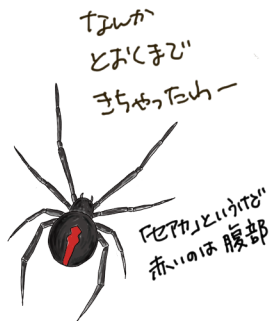 なんか
とおくまで
きちゃったわー
「セアカ」というけど
赤いのは腹部